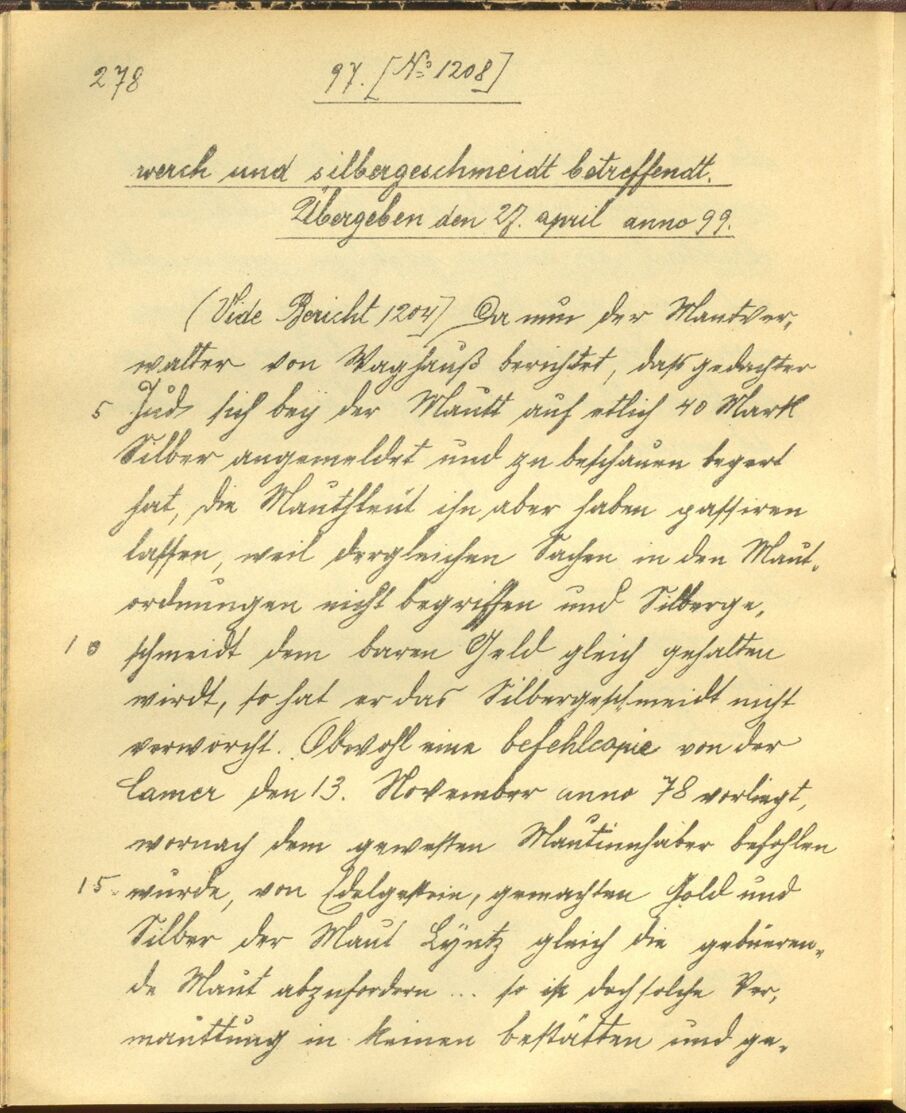 278
97. [No 1208]
werch und silbergeschmeidt betreffendt.
Übergeben den 27. april anno 99.
(Vide Bericht 1204] Da nun der Mautver,
walter von Waghauß berichtet, daß gedachter
5 Jud sich bey der Mautt auf etlich 40 Mark
Silber angemeldet und zu beschauen begert
hat, die Mauthleut ihn aber haben passiren
lassen, weil dergleichen Sachen in den Maut-
ordnungen nicht begriffen und Silberge,
10 schmeidt dem baren Geld gleich gehalten
wirdt, so hat er das Silbergeschmeidt nicht
verworcht. Obwohl eine befehlcopie von der
Camer den 13. November anno 78 vorliegt,
wornach dem gewesten Mautinnhaber befohlen
15 wurde, von Edelgestein, gemachten Gold und
Silber der Maut Lyntz gleich die gebüeren-
de Maut abzufordern ... so ist doch solche Ver,
mauttung in keinen bestätten und ge-